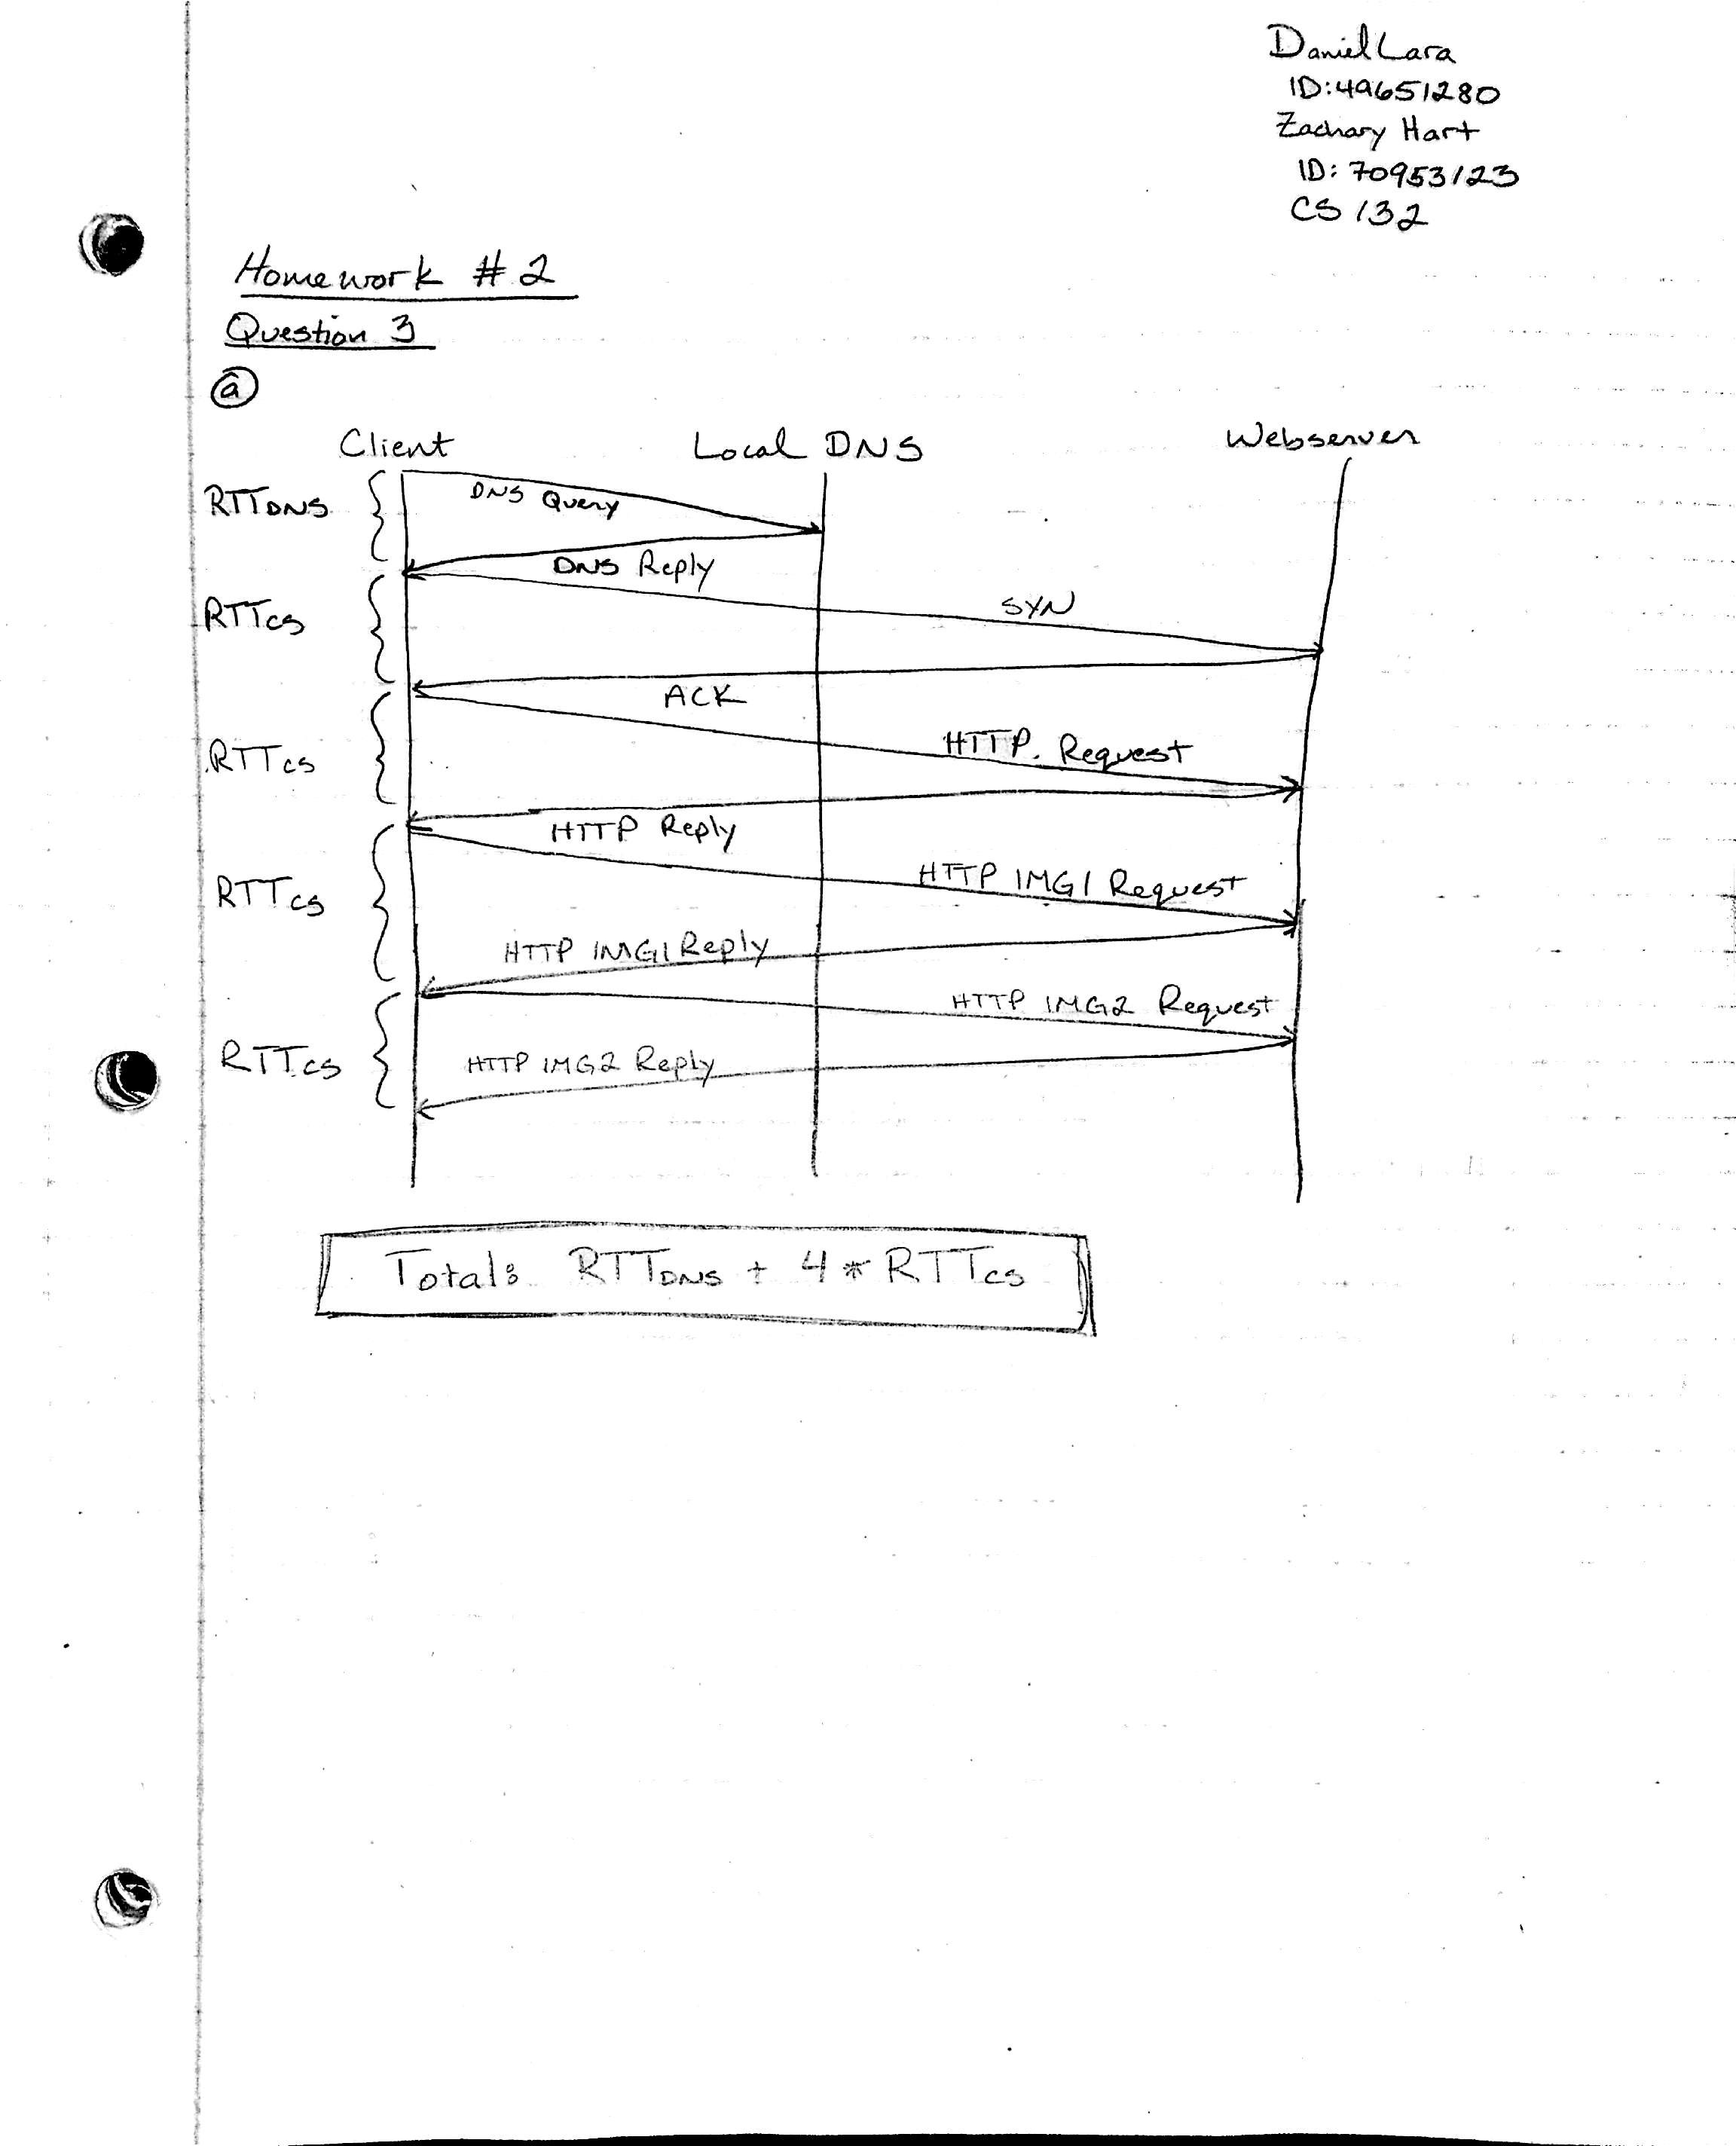 Daniel Lara
ID: 49651280
Zachary Hart
ID: 70953123
CS 132
Homework #2
Question 3
a
Client Local DNS Webserver
RTTDNS
DNS Query
DNS Reply
RTTcs
SYN
ACK
RTTcs
HTTP Request
HTTP Reply
RTTcs
HTTP IMG1 Request
HTTP IMG1 Reply
RTTcs
HTTP IMG2 Request
HTTP IMG2 Reply
Total: RTTDNS + 4 * RTTcs